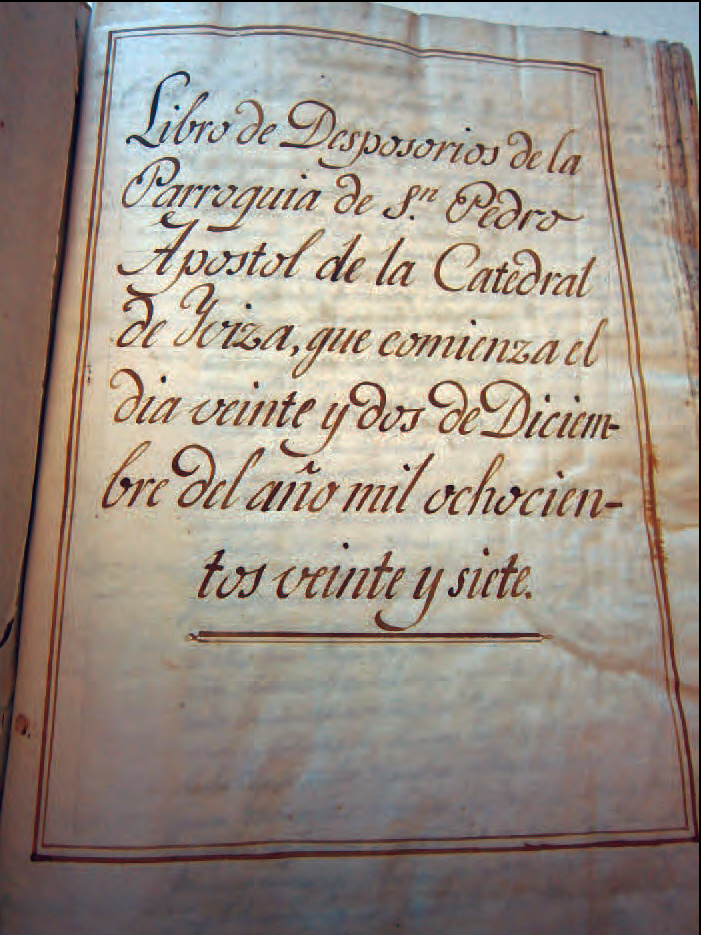 Libro de Desposorios de la
Parroquia de S.n Pedro
Apostol de la Catedral
de Yviza, que comienza el
dia veinte y dos de Diciem-
bre del año mil ochocien-
tos veinte y siete.